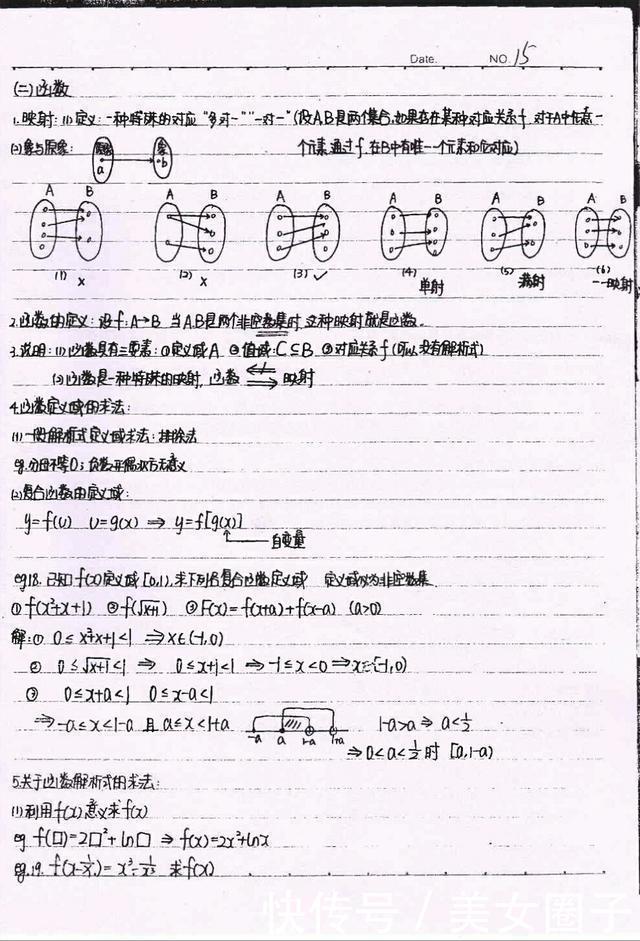 Date. NO. 15
(二)函数
1.映射:(1)定义:一种特殊的对应"多对一""一对一"(设A,B是两个集合,如果存在某种对应关系f,对于A中任意一
(2)象与原象: 原象 a 象 b 个元素通过f,在B中有唯一一个元素和它对应)
A B A B A B A B A B A B
(1) × (2) × (3) ✓ (4) 单射 (5) 满射 (6) 一一映射
2.函数的定义:设f:A→B 当A,B是两个非空数集时,这种映射就是函数。
3.说明:(1)函数具有三要素:①定义域A ②值域:C⊆B ③对应关系f(可以没有解析式)
(2)函数是一种特殊的映射,函数 映射
4.函数定义域的求法:
(1)一般解析式定义域求法:排除法
eg.分母不等0;负数开偶次方无意义
(2)复合函数的定义域:
y=f(u) u=g(x) ⇒ y=f[g(x)]
自变量
eg18.已知f(x)定义域[0,1),求下列各复合函数定义域 定义域必为非空数集
①f(x²+x+1) ②f(√x+1) ③F(x)=f(x+a)+f(x-a) (a>0)
解:① 0≤x²+x+1<1 ⇒x∈(-1,0)
② 0≤√x+1<1 ⇒ 0≤x+1<1 ⇒-1≤x<0⇒x∈[-1,0)
③ 0≤x+a<1 0≤x-a<1
⇒-a≤x<1-a 且 a≤x<1+a -a a 1-a 1+a 1-a>a ⇒ a<1/2
⇒0<a<1/2时 [a,1-a)
5.关于函数解析式的求法:
(1)利用f(x)意义求f(x)
eg f(□)=2□²+ln□ ⇒ f(x)=2x²+lnx
eg.19. f(x-1/x)=x³-1/x³ 求f(x)
快传号/美女圈子